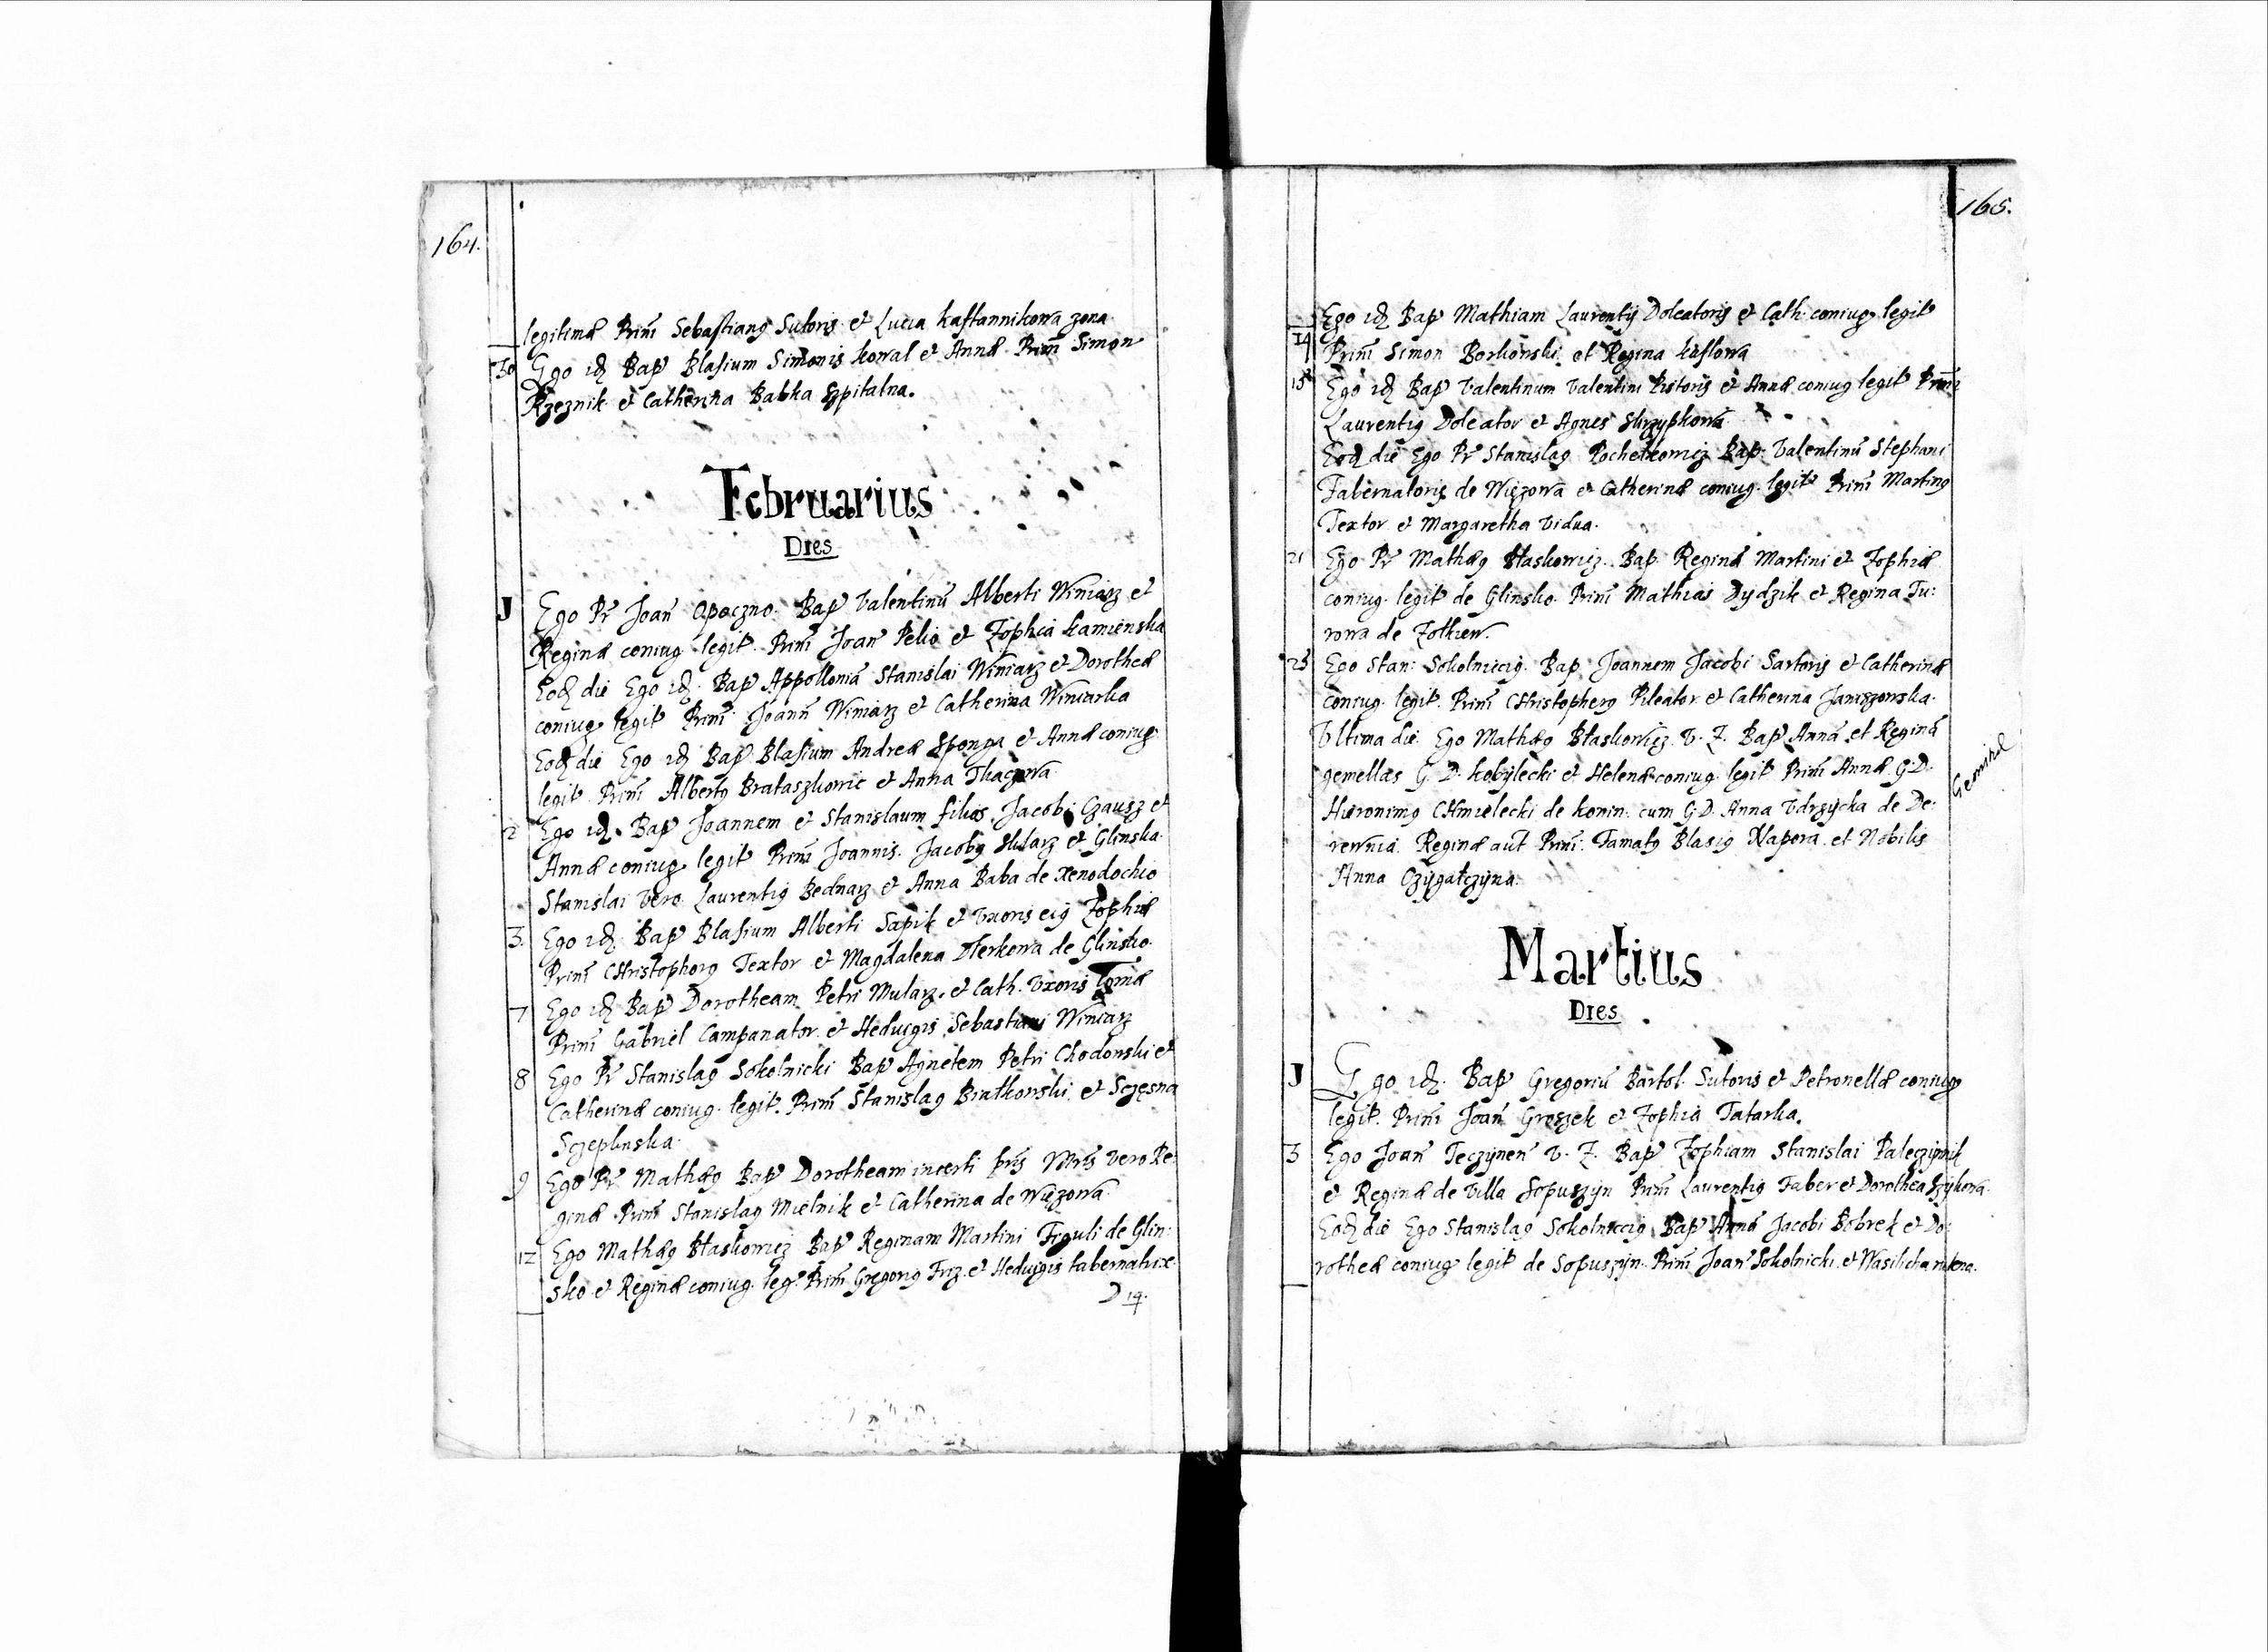 164.
legitimæ Prini Sebastiang Sutoris et Lucia kaftannikowa zona.
30 Ego idē Bap Blasium Simonis kowal et Annæ Prini Simon
Rzeznik et Catherina Babka szpitalna.
Februarius
Dies
J Ego Pr Joañ Opoczno. Bap Valentinū Alberti Winiarz et
Reginæ coniug legit. Prini Joañ Pelio et Zophia kamienska
Eodē die Ego idē Bap Appolloniā Stanislai Winiarz et Dorotheæ
coniug legit Prini Joann Winiarz et Catherina Winiarka
Eodē die Ego idē Bap Blasium Andreæ Sponga et Annæ coniug
legit. Prini Albertg Brataszkowic et Anna Tkaczowa
2 Ego idē. Bap Joannem et Stanislaum filios Jacobi Czausz et
Annæ coniug legit Prini Joannis. Jacobg sklarz et Glinska.
Stanislai vero Laurentig Bednarz et Anna Baba de Xenodochio
3. Ego idē Bap Blasium Alberti Sapik et Vxoris eig Zophiæ
Prini CHristophorg Textor et Magdalena Derkowa de Glinsko.
7 Ego idē Bap Dorotheam Petri Mularz. et Cath. Vxoris
Prini Gabriel Campanator. et Heduigis Sebastiani Winiarz
8 Ego Pr Stanislag Sokolnicki Bap Agnetem Petri Chodonski et
Catherinæ coniug. legit. Prini Stanislag Biatkonski, et Sczęsna
Sczeplinska.
9 Ego Pr Mathæg Bap Dorotheam incerti pris Mris vero Re:
ginæ Prini Stanislag Mielnik et Catherina de Więzowa
12 Ego Mathæg Błaskowicz Bap Reginam Martini Figuli de Glin:
sko et Reginæ coniug. leg. Prini Gregorig Friz. et Heduigis tabernatrix.
D 14.
165.
14 Ego idē Bap Mathiam Laurentij Doleatoris et Cath: coniug legit
Prini Simon Borkonski et Regina kuslowa
15 Ego idē Bap Valentinum Valentini Pistoris et Annæ coniug legit Prini
Laurentig Doleator et Agnes Skrzypkowa
Eodē die Ego Pr Stanislag Pochetkowicz Bap. Valentinū Stephani
Tabernatoris de Więzowa et Catherinæ coniug. legit Prini Marting
Textor et Margaretha Vidua.
21 Ego Pr Mathæg Błaskowicz. Bap. Reginā Martini et Zophiæ
coniug. legit de Glinsko. Prini Mathias Dydzik et Regina Tu:
rowa de Zotkiew.
25 Ego Stan: Sokolnicig. Bap Joannem Jacobi Sartoris et Catherinæ
coniug. legit. Prini CHristopherg Pileator et Catherina Janiszowska.
Vltima die Ego Mathæg Błaskowicz. V. Z. Bap Annā et Reginā
gemellas G. D. kobylecki et Helenæ coniug. legit Prini Annæ G.D.
Hieronimg CHmielecki de konin: cum G.D. Anna Vdrzycka de De:
rewnia. Reginæ aut Prini. Famatg Blasig Napora. et Nobilis
Anna Czygatczyna.
Gemihi
Martius
Dies
J Ego idē. Bap Gregoriū Bartol. Sutoris et Petronellæ coniug
legit. Prini Joañ Groszek et Zophia Tatarka.
3 Ego Joañ Teczynen V. Z. Bap Zophiam Stanislai Paleczipnik
et Reginæ de Villa Sopuszyn Prini Laurentig Faber et Dorothea Szykowa.
Eodē die Ego Stanislag Sokolnicig Bap Annā Jacobi Bobrek et Do:
rotheæ coniug legit de Sopuszyn. Prini Joañ Sokolnicki. et Wasilicha rutena.